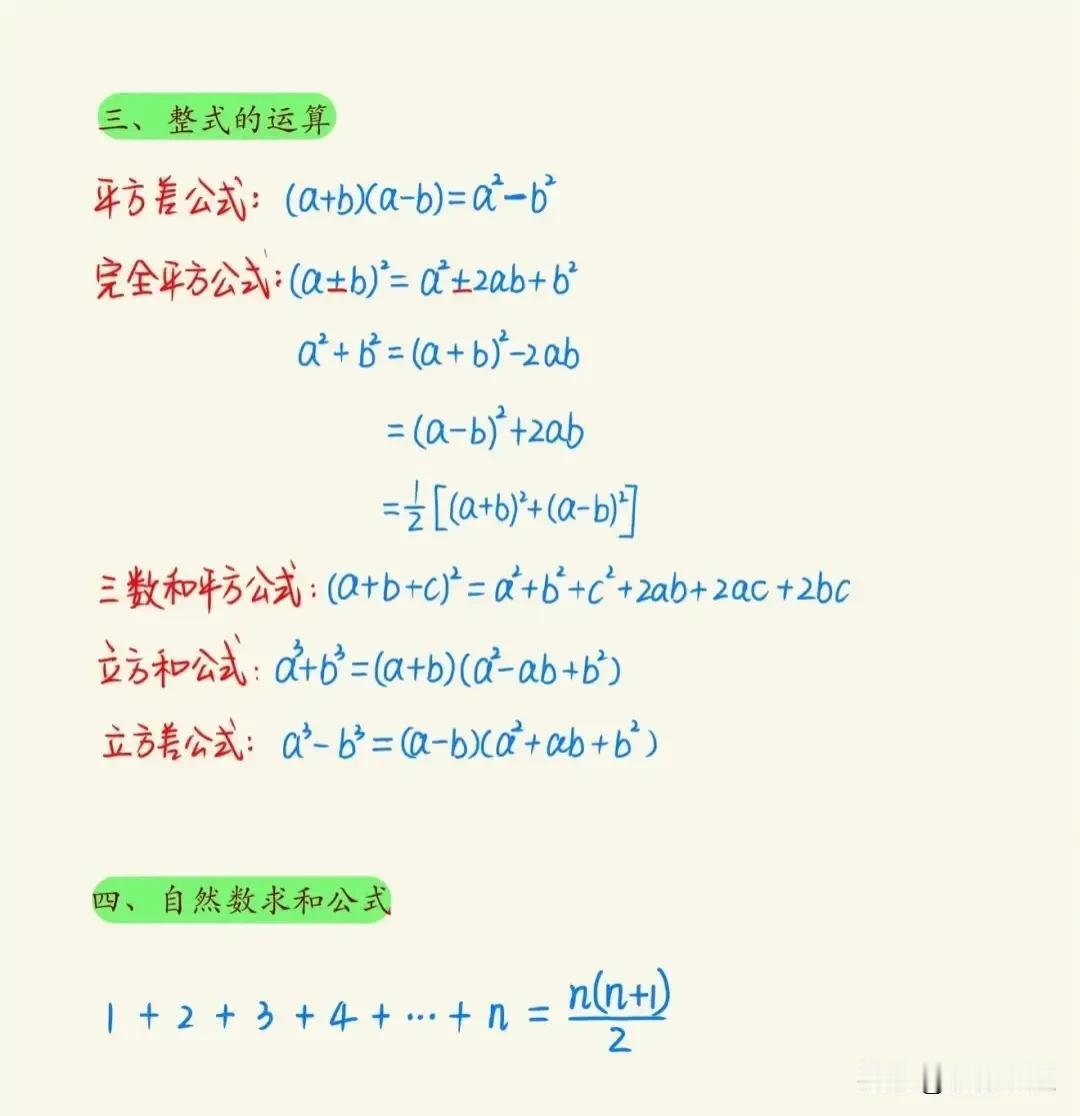 三、整式的运算
平方差公式：(a+b)(a-b)=a²-b²
完全平方公式：(a±b)²=a²±2ab+b²
a²+b²=(a+b)²-2ab
=(a-b)²+2ab
=½[(a+b)²+(a-b)²]
三数和平方公式：(a+b+c)²=a²+b²+c²+2ab+2ac+2bc
立方和公式：a³+b³=(a+b)(a²-ab+b²)
立方差公式：a³-b³=(a-b)(a²+ab+b²)
四、自然数求和公式
1+2+3+4+…+n=n(n+1)/2